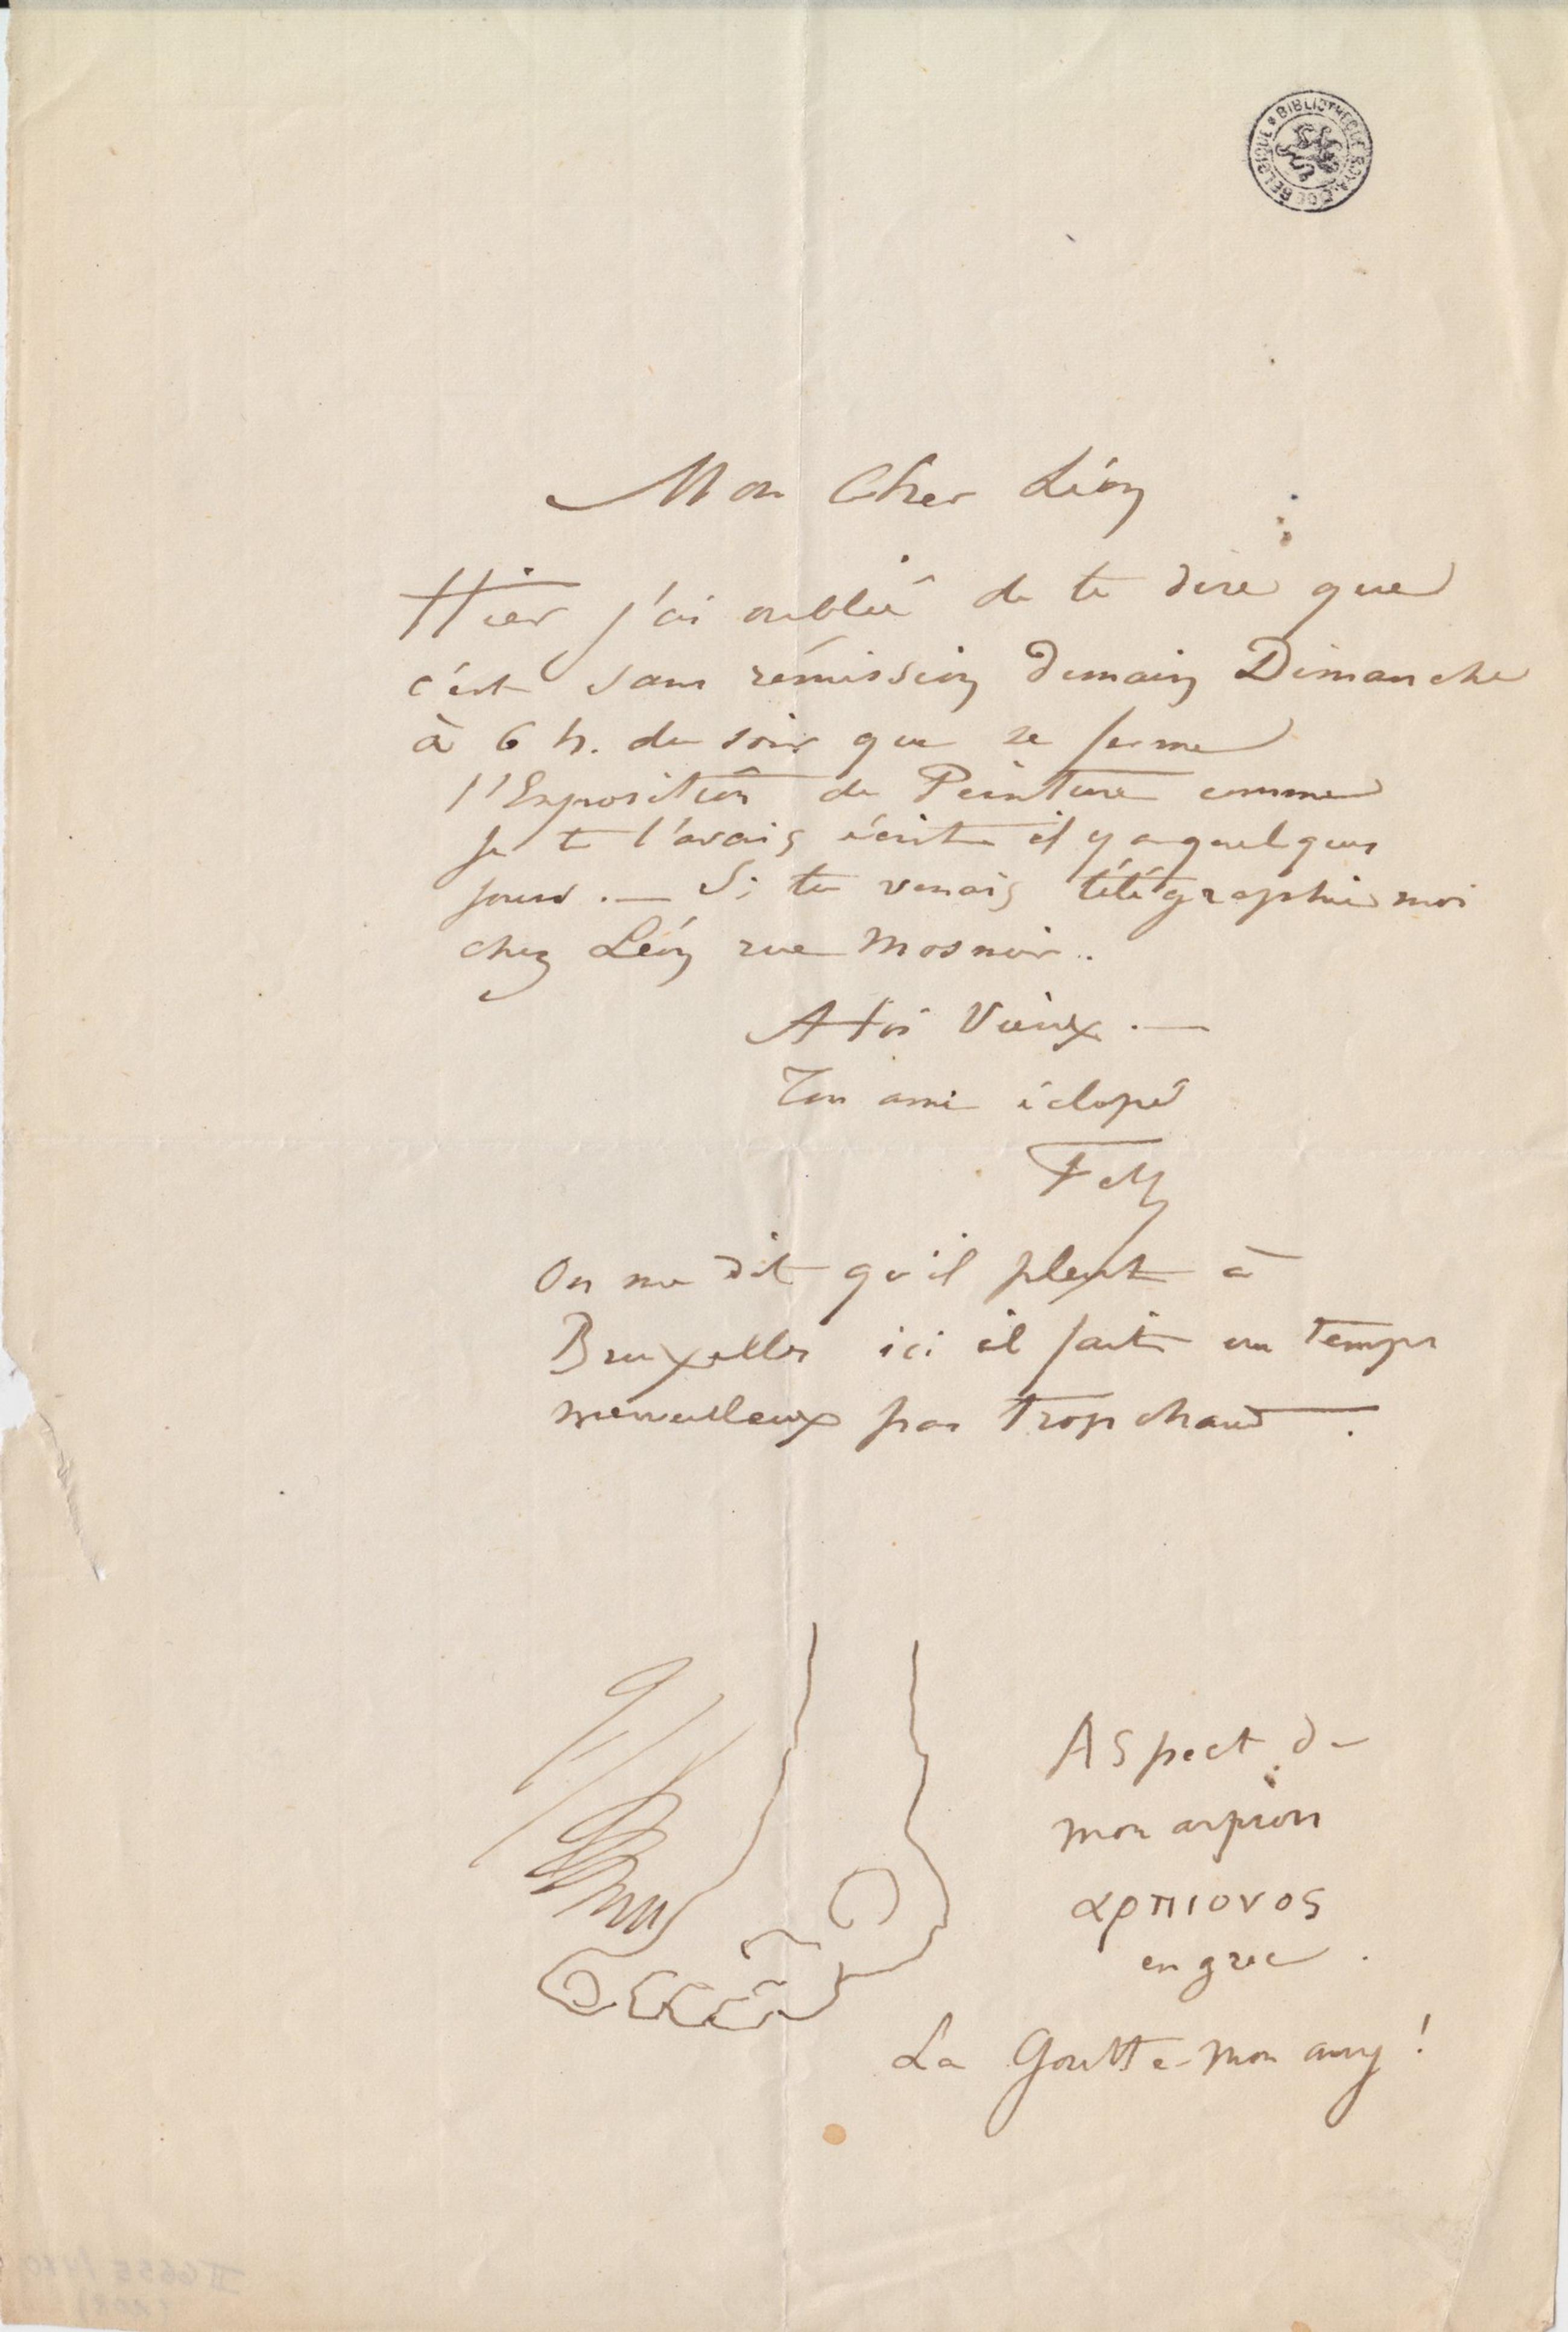 BIBLIOTHEQUE ROYALE DE BELGIQUE
Mon Cher Léon
Hier j'ai oublié de te dire que
c'est sans rémission demain Dimanche
à 6 h. du soir que se ferme
l'Exposition de Peinture comme
je te l'avais écrit il y a quelques
jours. — Si tu venais télégraphie moi
chez Léon rue Mosnier..
A toi Vieux. —
Ton ami éclopé
Fely
On me dit qu'il pleut à
Bruxelles ici il fait un temps
merveilleux pas trop chaud.
Aspect de
mon arpion
αρπιονος
en grec.
La Goutte mon amy!
II 6655/410